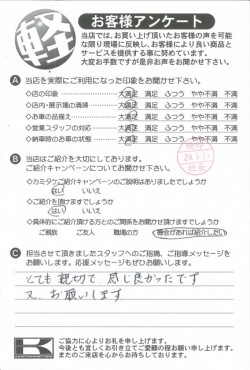 軽
お客様アンケート
当店では、お買い上げ頂いたお客様の声を可能
な限り現場に反映し、お客様により良い商品と
サービスを提供する事に努めています。
大変お手数ですが是非お声をお聞かせ下さい。
A 当店を実際にご利用になった印象をお聞かせ下さい。
◇店の印象 大満足 満足 ふつう やや不満 不満
◇店内・展示場の清掃 大満足 満足 ふつう やや不満 不満
◇お車の品揃え 大満足 満足 ふつう やや不満 不満
◇営業スタッフの対応 大満足 満足 ふつう やや不満 不満
◇納車時のお車の状態 大満足 満足 ふつう やや不満 不満
B 当店はご紹介を大切にしております。
ご紹介キャンペーンについてお聞かせ下さい。
◇カミタケご紹介キャンペーンのご説明はありましたでしょうか
はい いいえ
◇ご紹介を頂けますでしょうか
はい いいえ
◇具体的にご紹介頂ける方とのご関係をお聞かせ頂けますでしょうか
ご親族 ご友人 職場の方 機会があれば紹介したい
C 担当させて頂きましたスタッフへのご指摘、ご指導メッセージを
お願いします。応援メッセージもぜひお聞かせ下さい。
とても親切で感じ良かったです
又、お願いします
K
ご協力に心よりお礼を申し上げます。
今後とも宜しくお引き立てご愛顧の程お願い申し上げます。
またのご来店を心からお待ちしております。